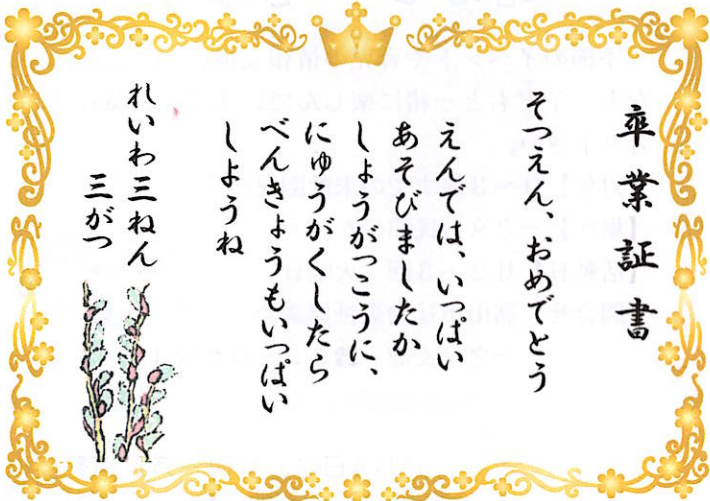 卒業証書
そつえん、おめでとう
えんでは、いっぱい
あそびましたか
しょうがっこうに、
にゅうがくしたら
べんきょうもいっぱい
しようね
れいわ三ねん
三がつ